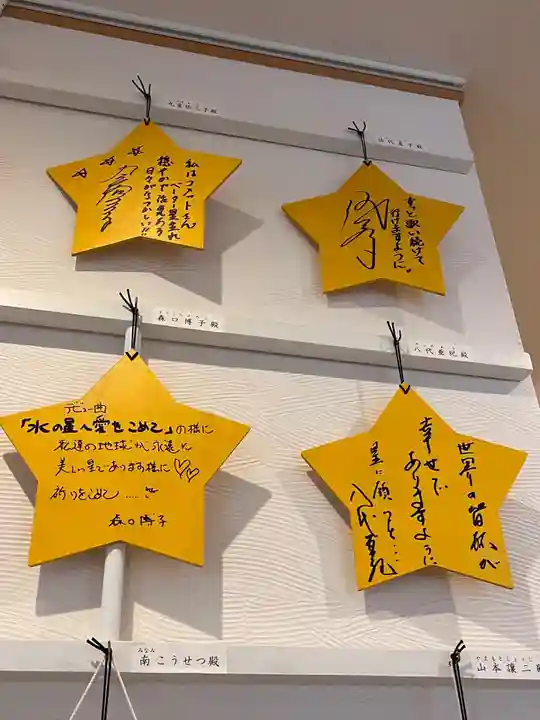 伍代夏子殿
私はフメットさん
ベーター星生れ
穏やかで活気ある
日々がなつかしい!!
ずっと歌い続けて
行けますように。
もりぐちひろこ
森口博子殿
八代亜紀殿
デビュー曲
「水の星へ愛をこめて」の様に
私達の地球が永遠に
美しい星であります様に♡♡
祈りをこめて……
森口博子
世界の皆様が
幸せで
ありますように
星に願って…
八代亜紀
みなみ
南こうせつ殿
やまもとじょうじ
山本譲二殿